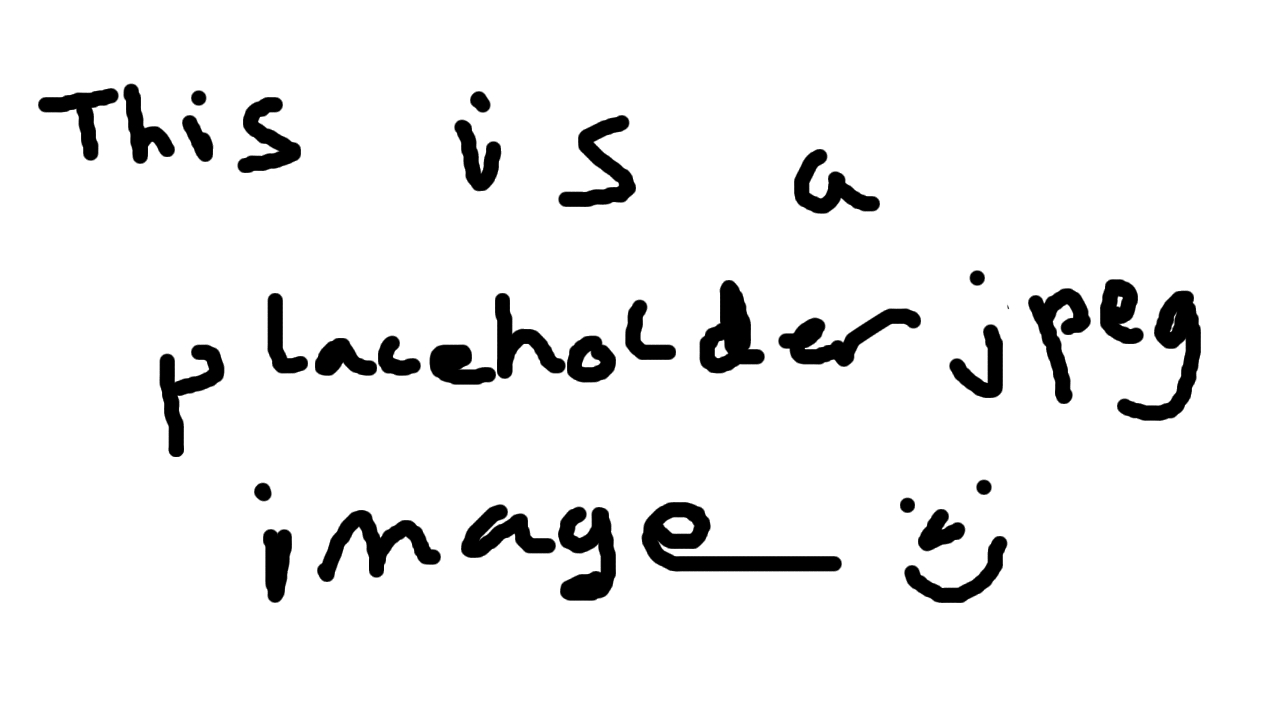 This is a
placeholder jpeg
image